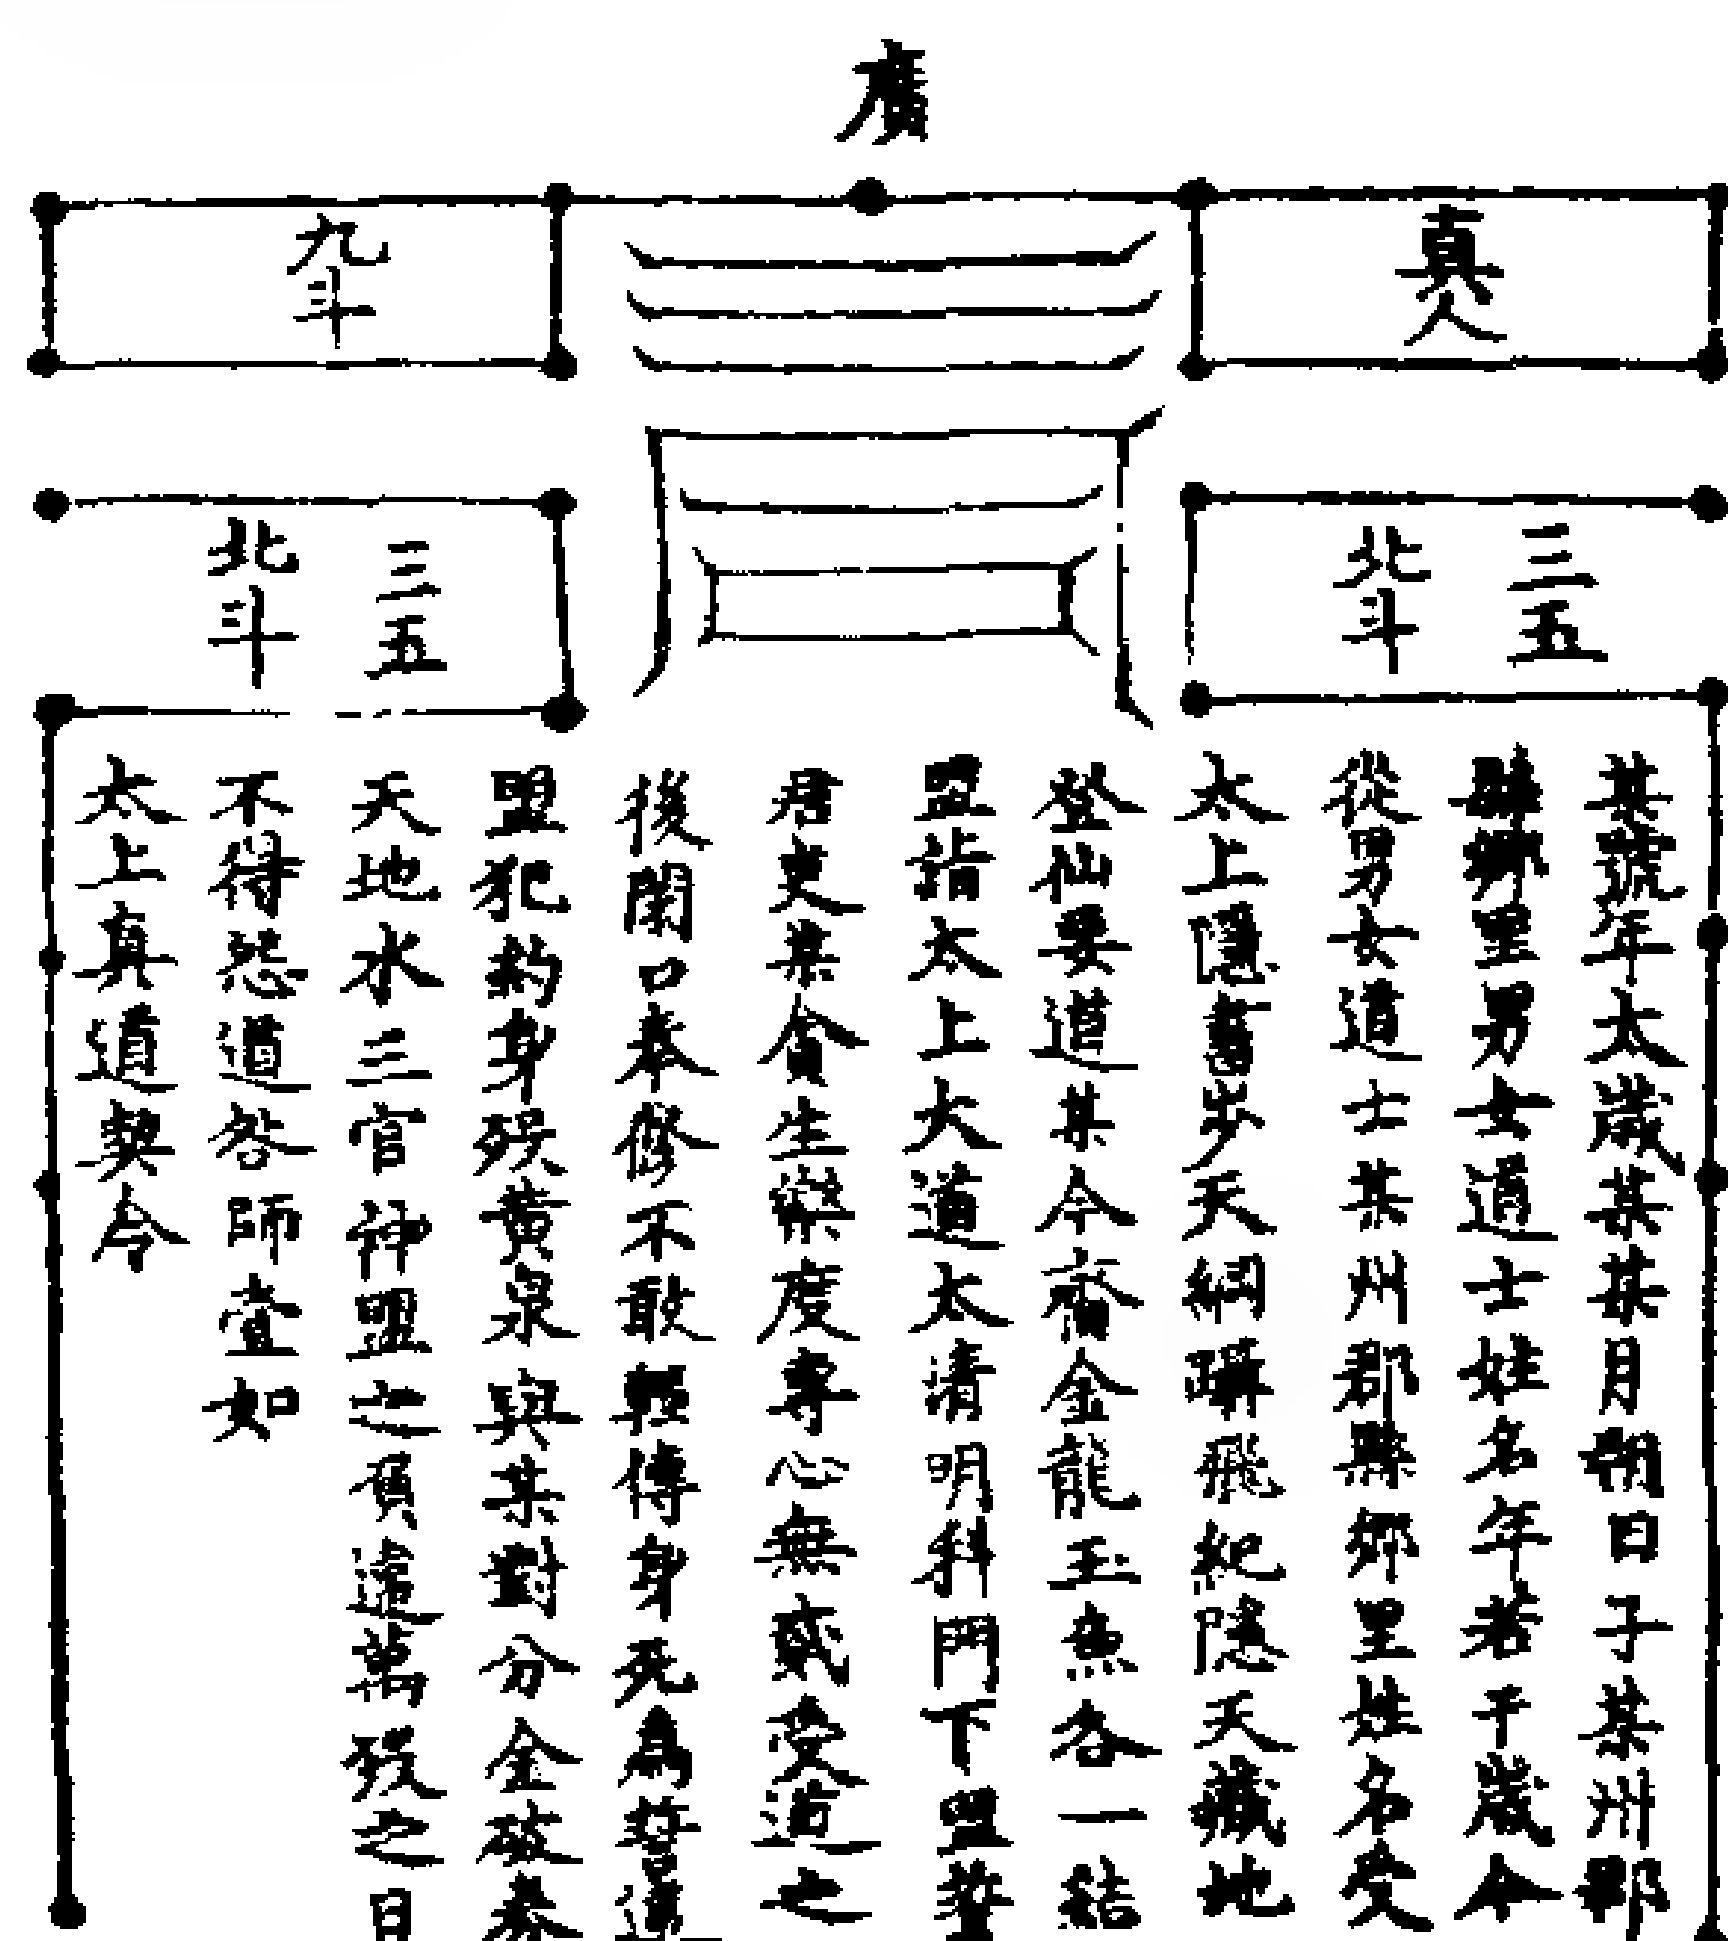 廣
真人
九斗
三五
北斗
三五
北斗
某號年太歲某某月朔日子某州郡
縣鄉里男女道士姓名年若干歲今
從男女道士某州郡縣鄉里姓名受
太上隱書步天綱躡飛紀隱天藏地
登仙要道某今齎金龍玉魚各一結
盟詣太上大道太清明科門下盟誓
君吏某貪生樂度專心無貳受道之
後閉口奉修不敢輕傳身死為誓違
盟犯約身殁黃泉與某對分金破券
天地水三官神盟之負違萬殁之日
不得怨道咎師壹如
太上真道契令